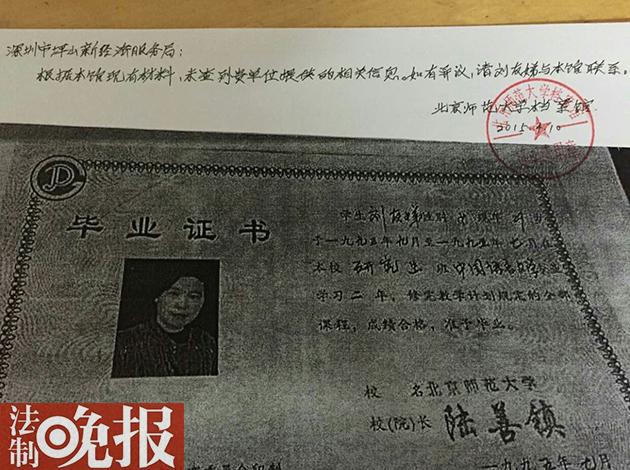 深圳市坪山新区经济服务局:
根据本馆现有材料,未查到贵单位提供的相关信息。如有异议,请刘友娣与本馆联系。
北京师范大学档案馆
2015.4.10
毕业证书
学生刘友娣性别
于一九九三年七月至一九九五年七月在
本校研究生班中国语言文学专业
学习二年,修完教学计划规定的全部
课程,成绩合格,准予毕业。
校名北京师范大学
校(院)长 陆善镇
一九九五年七月
法制晚报